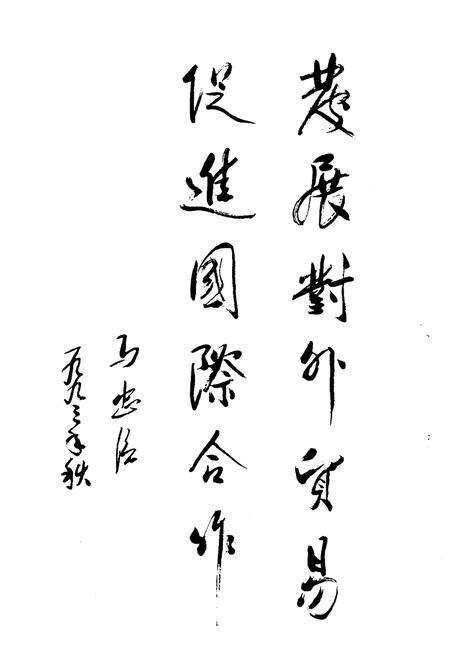 發展對外貿易
促進國際合作
馬忠臣
一九九三年秋